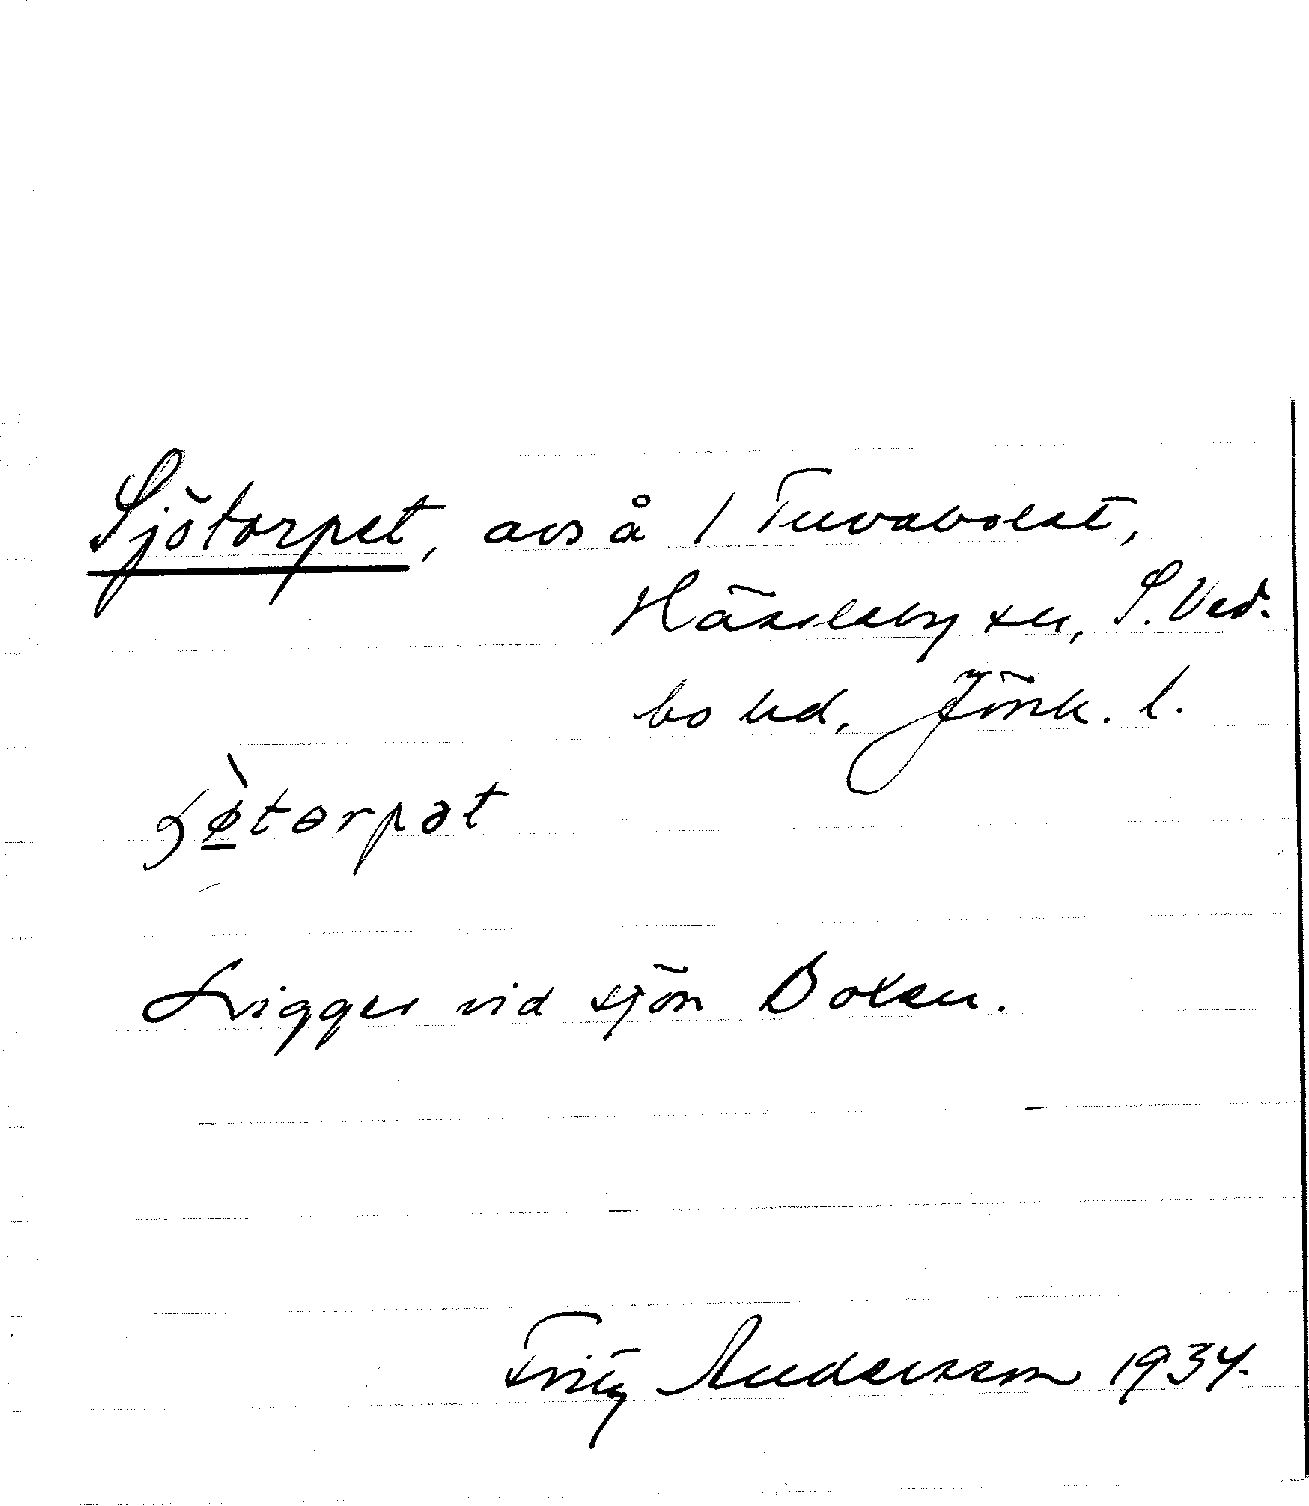 Sjötorpet, avs å 1 Tuvabolet,
Hässleby sn, S. Ved-
bo hd, Jönk. l.
ʂø̀torpət
Ligger vid sjön
Fritz Andersson 1934.